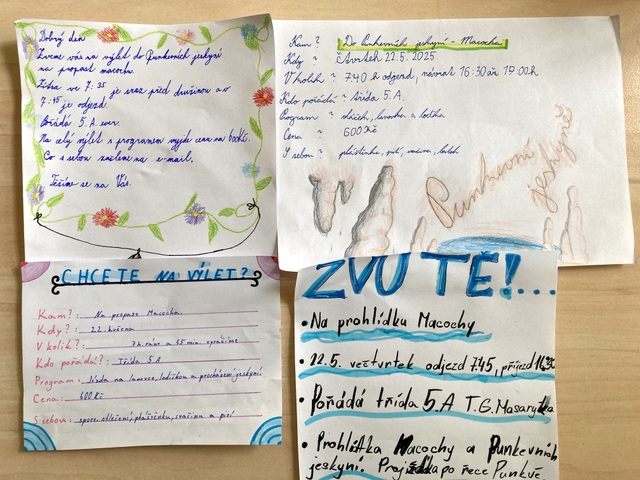 Dobrý den
Zveme vás na výlet do Punkevních jeskyní
na propast macochu.
Zítra ve 7:35 je sraz před družinou a v
7:45 je odjezd.
Pořádá 5.A
Na celý výlet s programem vyjde cena na 600Kč.
Co s sebou zašleme na e-mail.
Těšíme se na Vás.
Kam? Do Punkevních jeskyní - Macocha
Kdy? čtvrtek 22.5.2025
V kolik? 7:40 h odjezd, návrat 16:30 až 17:00h
Kdo pořádá? třída 5.A
Program? lanovka a loďka
Cena? 600 Kč
S sebou? pláštěnka, pití, svačina, batoh
Punkevní
jeskyně
CHCETE NA VÝLET?
Kam?: Na propast Macocha.
Kdy?: 22. května
V kolik?: 7h. ráno a 45 min. vyrážíme
Kdo pořádá?: Třída 5.A
Program: Jízda na lanovce, lodičkou a procházení jeskyní
Cena: 600 Kč
S sebou: spor. oblečení, pláštěnku, svačinu a pití
ZVU TĚ!...
• Na prohlídku Macochy
• 22.5. ve čtvrtek odjezd 7:45, příjezd 16:30
• Pořádá třída 5.A T.G. Masaryka
• Prohlídka Macochy a Punkevních
jeskyní. Projížďka po řece Punkvě.